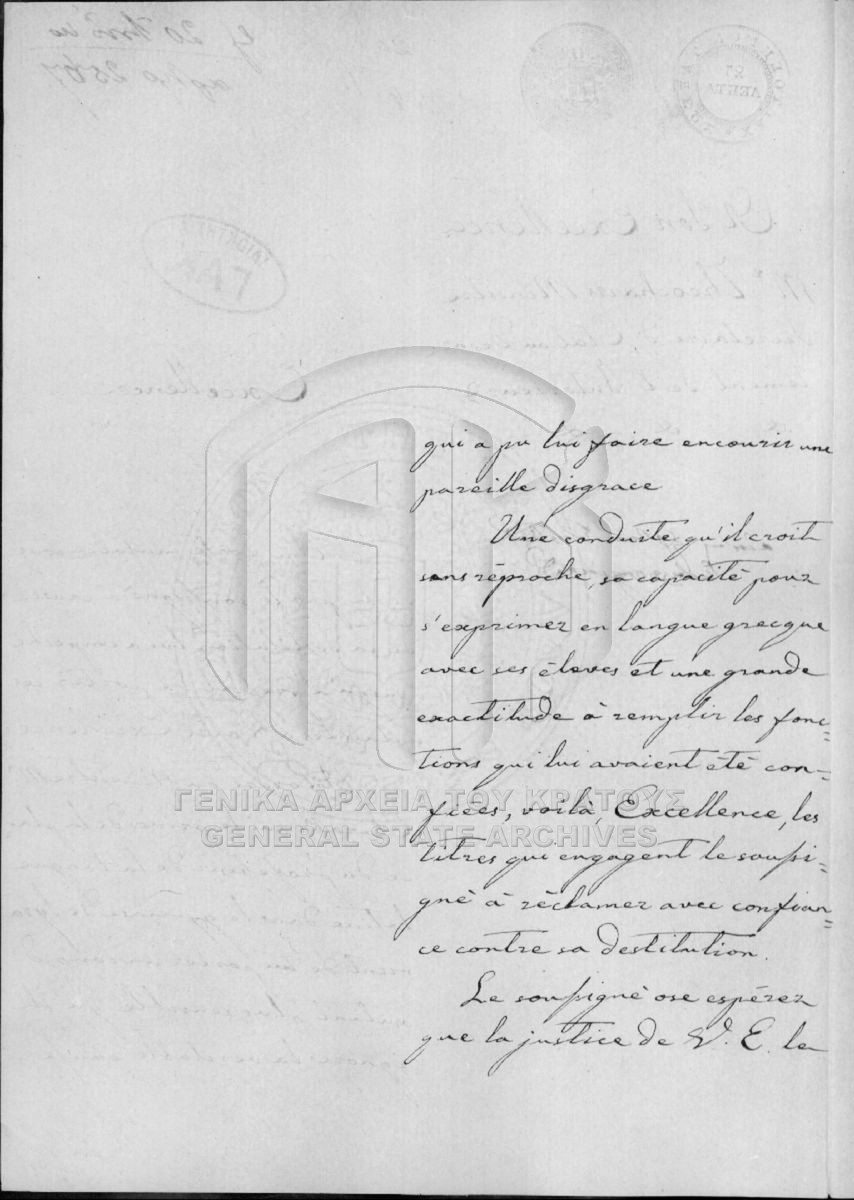 qui a pu lui faire encourir une
pareille disgrace
Une conduite qu'il croit
sans réproche, sa capacité pour
s'exprimer en langue grecque
avec ses éleves et une grande
exactitude à remplir les fonc=
tions qui lui avaient été con=
fiées, voilà, Excellence, les
titres que engagent le soussi=
gné à réclamer avec confian=
ce contre sa destitution.
Le soussigné ose espérer
que la justice de V. E. le
ΓΕΝΙΚΑ ΑΡΧΕΙΑ ΤΟΥ ΚΡΑΤΟΥΣ
GENERAL STATE ARCHIVES